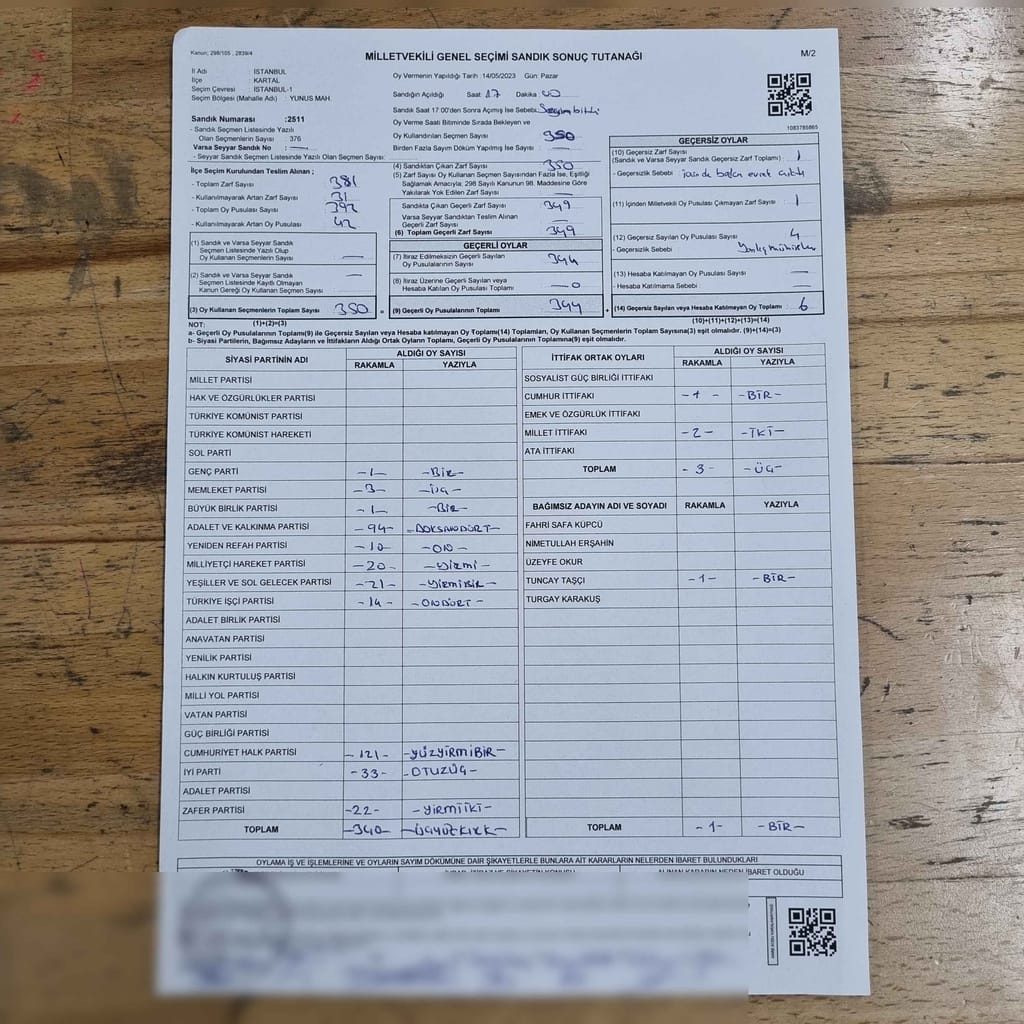 Kanun; 298/105 , 2839/4
MİLLETVEKİLİ GENEL SEÇİMİ SANDIK SONUÇ TUTANAĞI
M/2
İl Adı : İSTANBUL
İlçe : KARTAL
Seçim Çevresi : İSTANBUL-1
Seçim Bölgesi (Mahalle Adı) : YUNUS MAH.
Sandık Numarası :2511
- Sandık Seçmen Listesinde Yazılı
Olan Seçmenlerin Sayısı : 376
Varsa Seyyar Sandık No : —
- Seyyar Sandık Seçmen Listesinde Yazılı Olan Seçmen Sayısı:
İlçe Seçim Kurulundan Teslim Alınan ;
- Toplam Zarf Sayısı : 381
- Kullanılmayarak Artan Zarf Sayısı : 31
- Toplam Oy Pusulası Sayısı : 392
- Kullanılmayarak Artan Oy Pusulası : 42
(1) Sandık ve Varsa Seyyar Sandık
Seçmen Listesinde Yazılı Olup
Oy Kullanan Seçmenlerin Sayısı : —
(2) Sandık ve Varsa Seyyar Sandık
Seçmen Listesinde Kayıtlı Olmayan
Kanun Gereği Oy Kullanan Seçmen Sayısı : —
(3) Oy Kullanan Seçmenlerin Toplam Sayısı : 350
(1)+(2)=(3)
Oy Vermenin Yapıldığı Tarih :14/05/2023 Gün: Pazar
Sandığın Açıldığı Saat 17 Dakika 00
Sandık Saat 17:00'den Sonra Açılmış İse Sebebi: Seçim bitti
Oy Verme Saati Bitiminde Sırada Bekleyen ve
Oy Kullandırılan Seçmen Sayısı : 350
Birden Fazla Sayım Döküm Yapılmış İse Sayısı : —
(4) Sandıktan Çıkan Zarf Sayısı : 350
(5) Zarf Sayısı Oy Kullanan Seçmen Sayısından Fazla İse, Eşitliği
Sağlamak Amacıyla; 298 Sayılı Kanunun 98. Maddesine Göre
Yakılarak Yok Edilen Zarf Sayısı :
Sandıkta Çıkan Geçerli Zarf Sayısı : 349
Varsa Seyyar Sandıktan Teslim Alınan
Geçerli Zarf Sayısı : —
(6) Toplam Geçerli Zarf Sayısı : 349
GEÇERLİ OYLAR
(7) İtiraz Edilmeksizin Geçerli Sayılan
Oy Pusulalarının Sayısı : 344
(8) İtiraz Üzerine Geçerli Sayılan veya
Hesaba Katılan Oy Pusulası Toplamı : — 0
= (9) Geçerli Oy Pusulalarının Toplamı : 344
1083785865
GEÇERSİZ OYLAR
(10) Geçersiz Zarf Sayısı
(Sandık ve Varsa Seyyar Sandık Geçersiz Zarf Toplamı) : 1
- Geçersizlik Sebebi : içinde başka evrak çıktı
(11) İçinden Milletvekili Oy Pusulası Çıkmayan Zarf Sayısı : 1
(12) Geçersiz Sayılan Oy Pusulası Sayısı : 4
- Geçersizlik Sebebi :
(13) Hesaba Katılmayan Oy Pusulası Sayısı : —
- Hesaba Katılmama Sebebi : —
+ (14) Geçersiz Sayılan veya Hesaba Katılmayan Oy Toplamı : 6
(10)+(11)+(12)+(13)=(14)
NOT:
a- Geçerli Oy Pusulalarının Toplamı(9) ile Geçersiz Sayılan veya Hesaba katılmayan Oy Toplamı(14) Toplamları, Oy Kullanan Seçmenlerin Toplam Sayısına(3) eşit olmalıdır. (9)+(14)=(3)
b- Siyasi Partilerin, Bağımsız Adayların ve İttifakların Aldığı Ortak Oyların Toplamı, Geçerli Oy Pusulalarının Toplamına(9) eşit olmalıdır.
SİYASİ PARTİNİN ADI ALDIĞI OY SAYISI
RAKAMLA YAZIYLA
MİLLET PARTİSİ
HAK VE ÖZGÜRLÜKLER PARTİSİ
TÜRKİYE KOMÜNİST PARTİSİ
TÜRKİYE KOMÜNİST HAREKETİ
SOL PARTİ
GENÇ PARTİ -1- -Bir-
MEMLEKET PARTİSİ -3- -üç-
BÜYÜK BİRLİK PARTİSİ -1- -Bir-
ADALET VE KALKINMA PARTİSİ -94- -DOKSANDÖRT-
YENİDEN REFAH PARTİSİ -10- -ON-
MİLLİYETÇİ HAREKET PARTİSİ -20- -Yirmi-
YEŞİLLER VE SOL GELECEK PARTİSİ -21- -YirmiBİR-
TÜRKİYE İŞÇİ PARTİSİ -14- -ONDÖRT-
ADALET BİRLİK PARTİSİ
ANAVATAN PARTİSİ
YENİLİK PARTİSİ
HALKIN KURTULUŞ PARTİSİ
MİLLİ YOL PARTİSİ
VATAN PARTİSİ
GÜÇ BİRLİĞİ PARTİSİ
CUMHURİYET HALK PARTİSİ -121- -YÜZYİRMİBİR-
İYİ PARTİ -33- -OTUZÜÇ-
ADALET PARTİSİ
ZAFER PARTİSİ -22- -YİRMİİKİ-
TOPLAM -340- -ÜÇYÜZKIRK-
İTTİFAK ORTAK OYLARI ALDIĞI OY SAYISI
RAKAMLA YAZIYLA
SOSYALİST GÜÇ BİRLİĞİ İTTİFAKI
CUMHUR İTTİFAKI -1- -BİR-
EMEK VE ÖZGÜRLÜK İTTİFAKI
MİLLET İTTİFAKI -2- -İKİ-
ATA İTTİFAKI
TOPLAM -3- -ÜÇ-
BAĞIMSIZ ADAYIN ADI VE SOYADI RAKAMLA YAZIYLA
FAHRİ SAFA KÜPCÜ
NİMETULLAH ERŞAHİN
ÜZEYFE OKUR
TUNCAY TAŞÇI -1- -BİR-
TURGAY KARAKUŞ
TOPLAM -1- -BİR-
OYLAMA İŞ VE İŞLEMLERİNE VE OYLARIN SAYIM DÖKÜMÜNE DAİR ŞİKAYETLERLE BUNLARA AİT KARARLARIN NELERDEN İBARET BULUNDUKLARI
ALINAN KARARIN NEDEN İBARET OLDUĞU